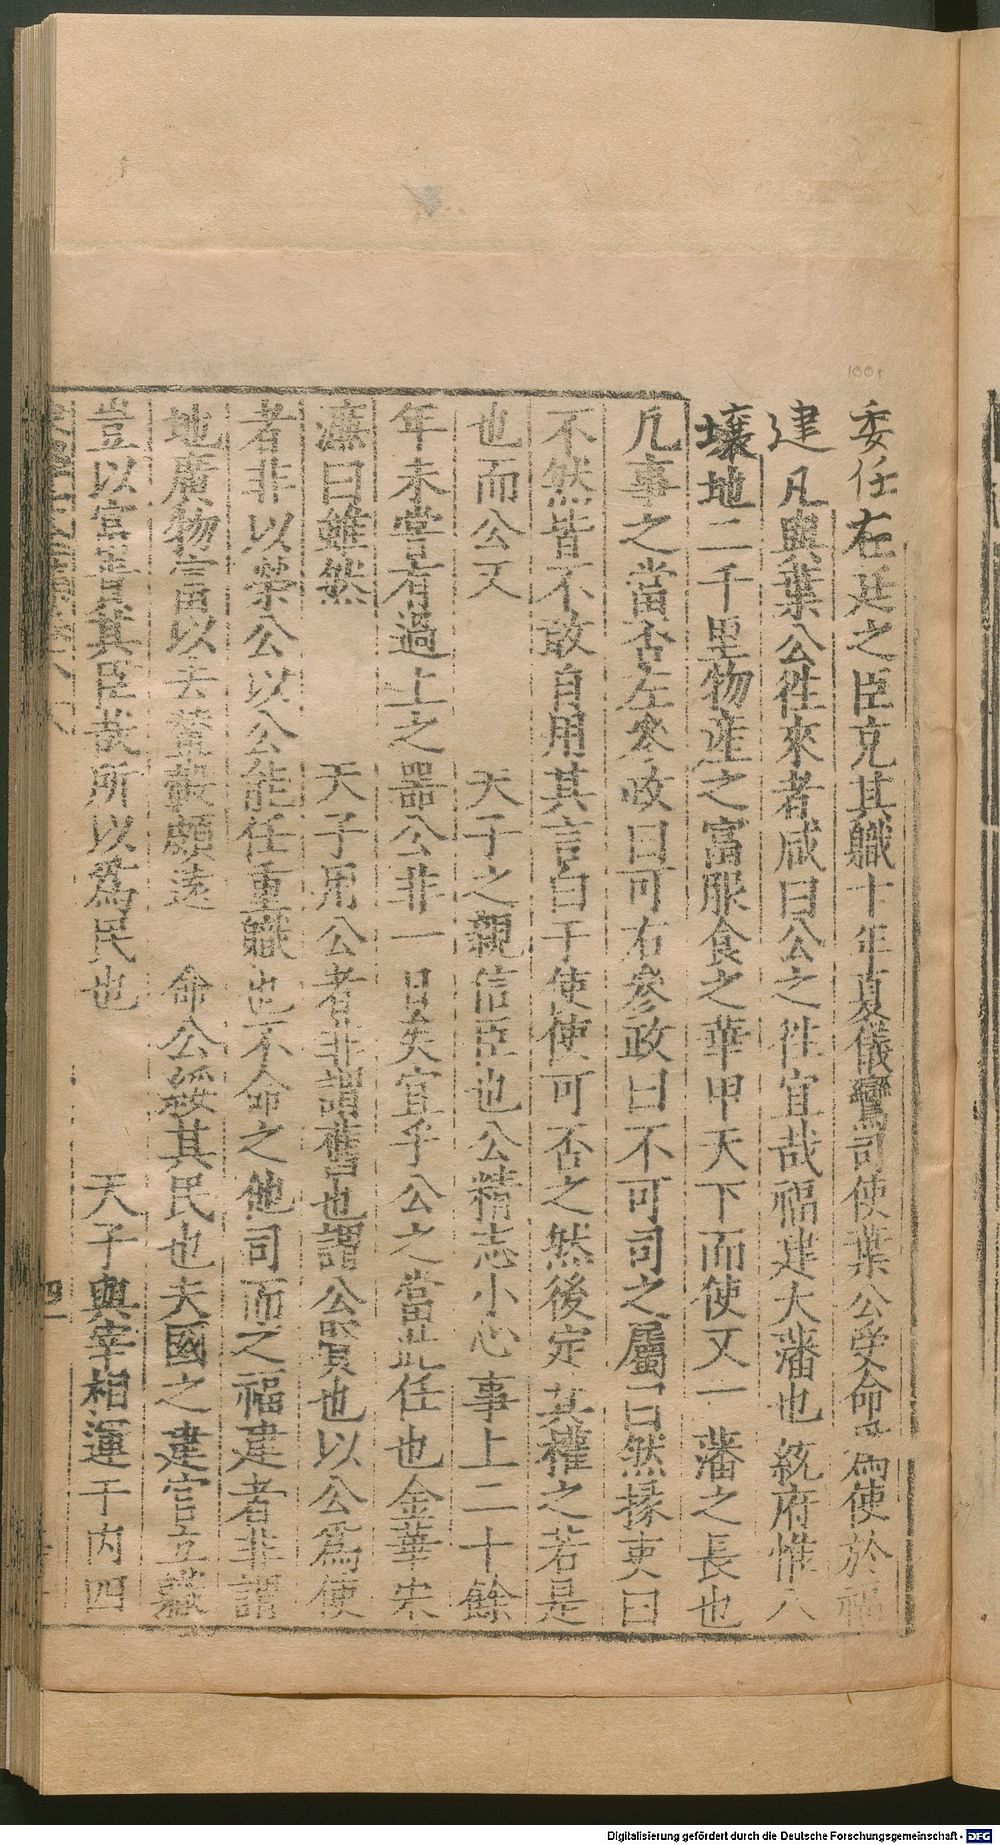 委任在廷之臣克其職十年夏儀鸞司使葉公受命爲使於福
建凡與葉公徃來者咸曰公之徃宜哉福建大藩也統府惟八
壤地二千里物産之富服食之華甲天下而使又一藩之長也
凡事之當否左參政曰可右參政曰不可司之屬曰然掾吏曰
不然皆不敢自用其言白于使使可否之然後定其權之若是
也而公又　　　天子之親信臣也公精志小心事上二十餘
年未嘗有過上之器公非一日矣宜乎公之當此任也金華宋
濂曰雖然　　　天子用公者非謂舊也謂公賢也以公爲使
者非以榮公以公能任重職也不命之他司而之福建者非謂
地廣物富以去輦轂頗遠　命公綏其民也夫國之建官立職
豈以富貴其臣哉所以爲民也　　　天子與宰相運于内四
1001
Digitalisierung gefördert durch die Deutsche Forschungsgemeinschaft - DFG